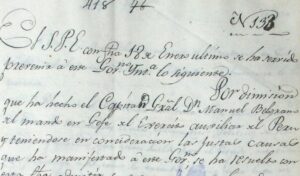 418 46
N. 153
El S. P. E. con fha 18 de Enero ultimo se ha servido
prevenir à este Gor.no Int.a lo siguiente
Por dimision
que ha hecho el Capitan Gral D.n Manuel Belgrano
al mando en Gefe del Exercito auxiliar del Peru
y teniendose en consideracion las justas causas
que ha manifestado à este Gor.no se ha resuelto con
esta fha